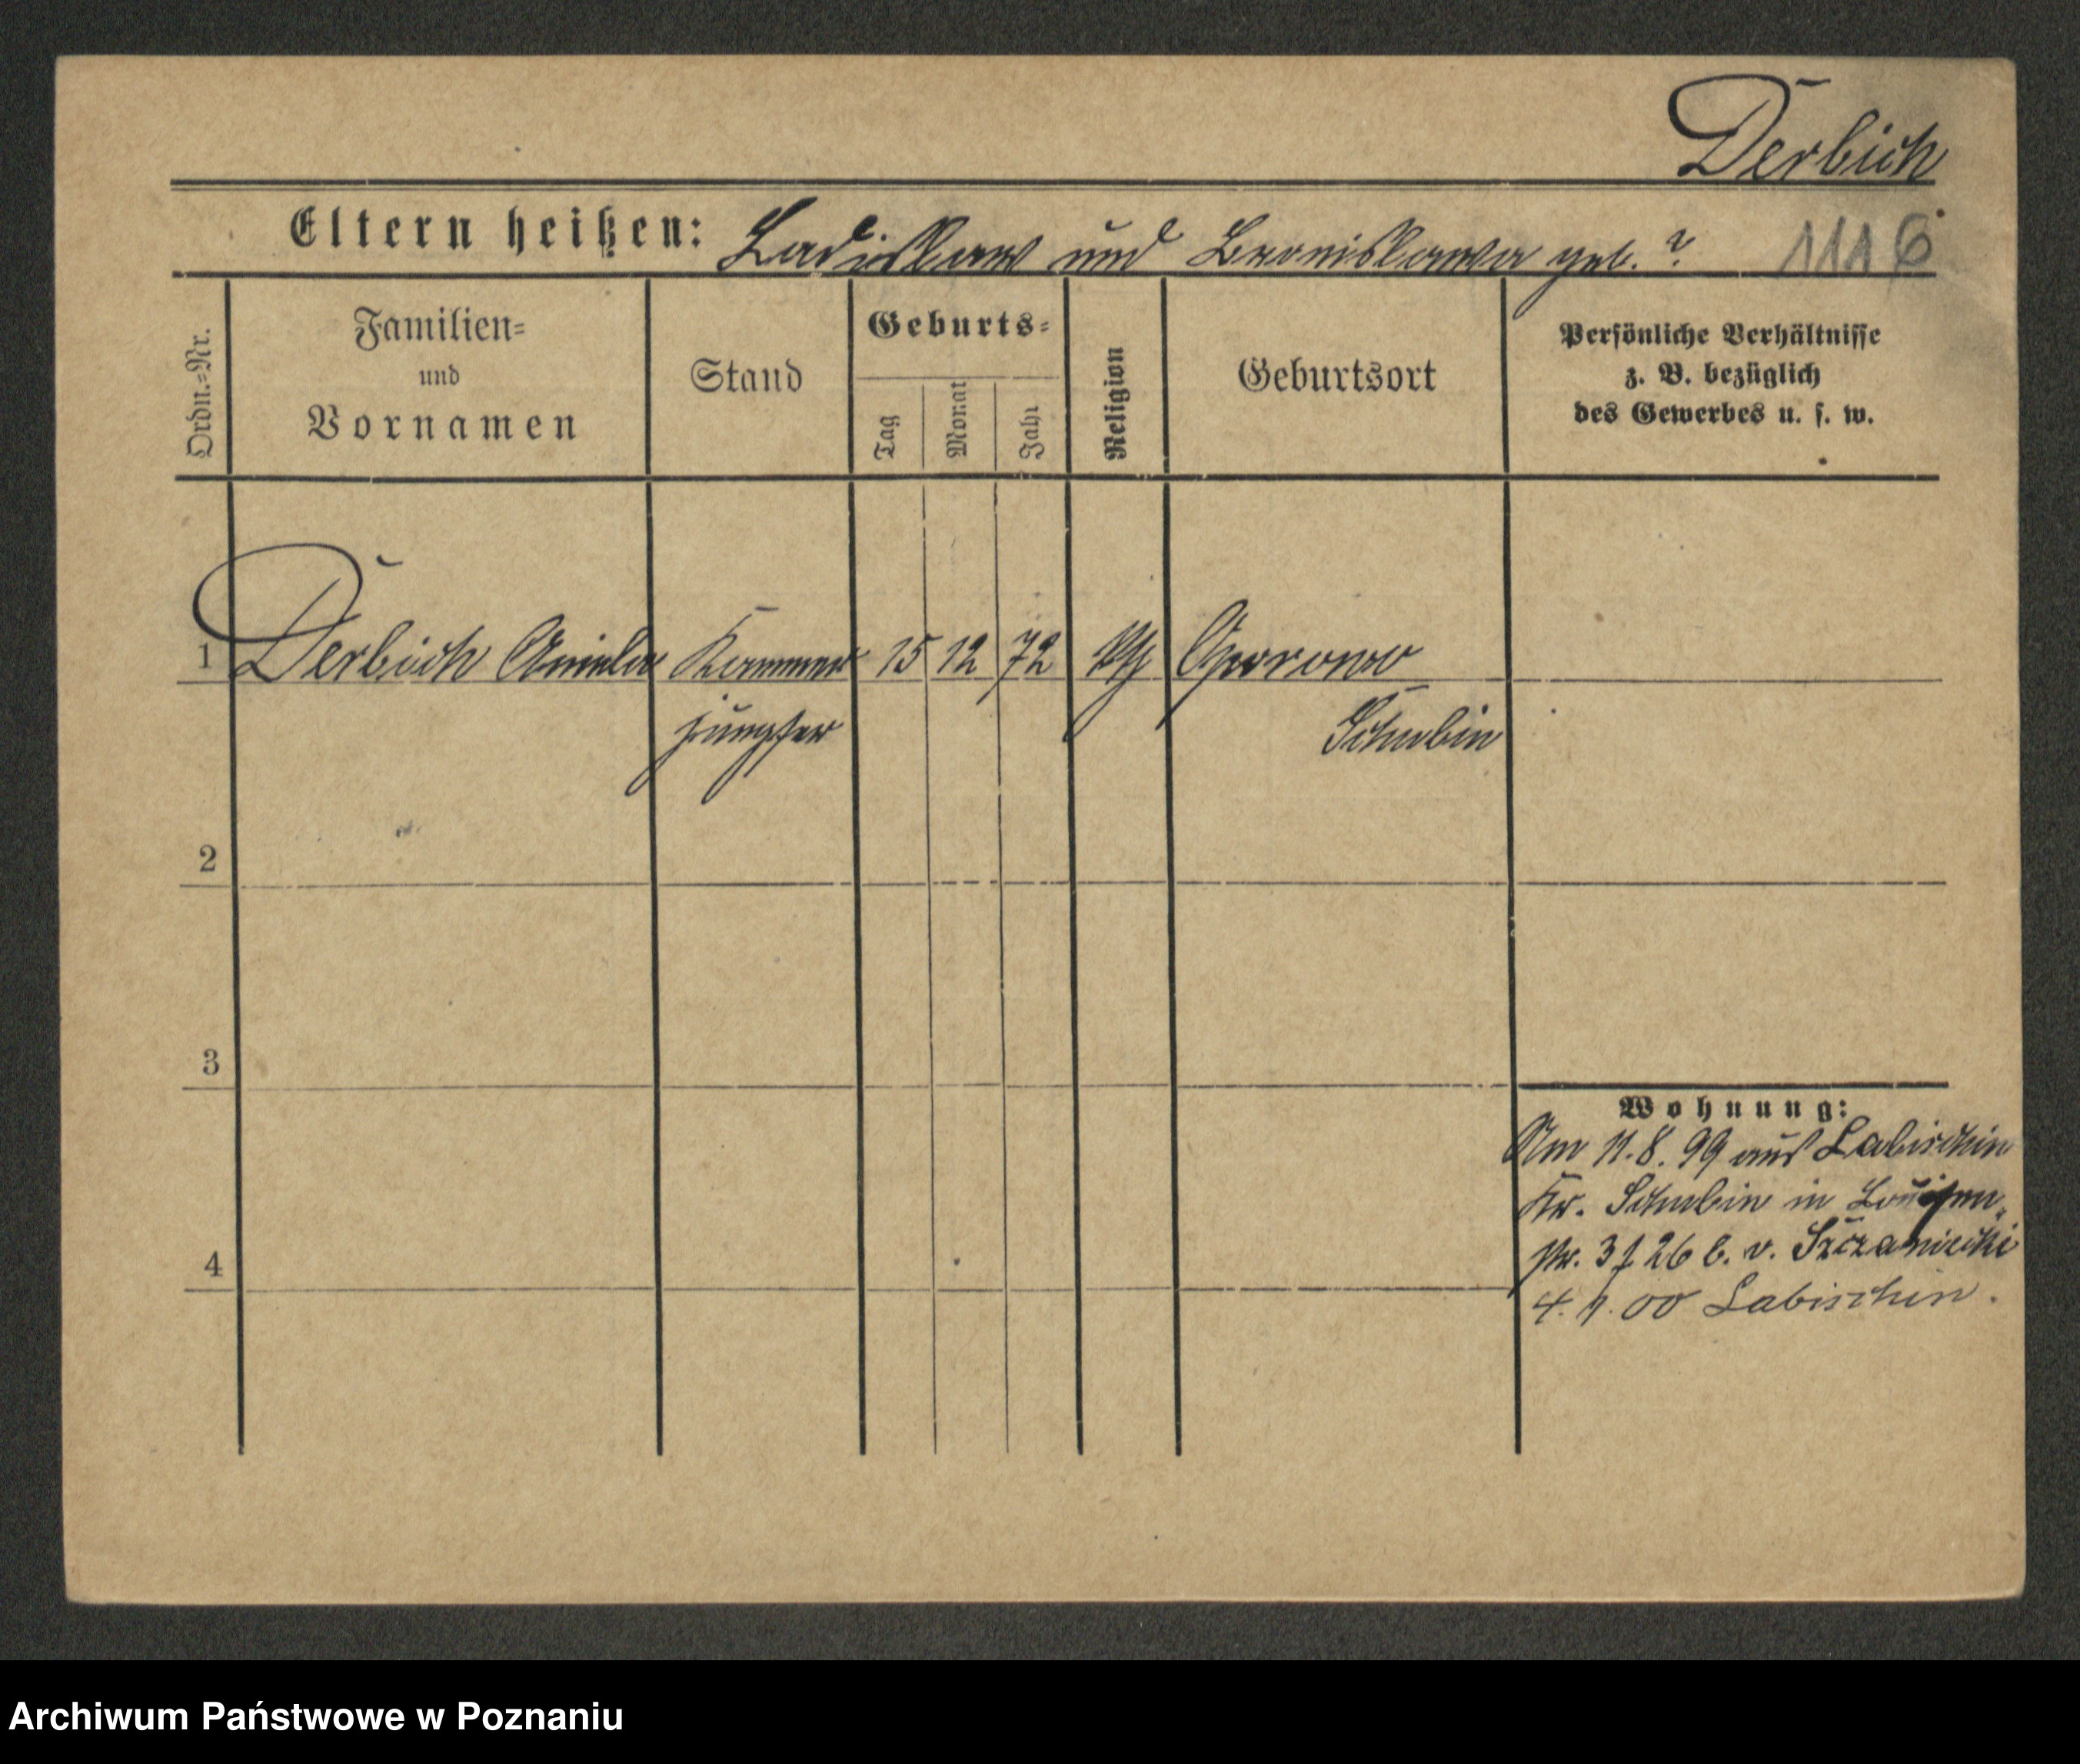 Derbich
Eltern heißen: Ladislaw und Bronislawa geb. ? 1116
Ordn.=Nr.
Familien=
und
Vornamen
Stand
Geburts=
Tag
Monat
Jahr
Religion
Geburtsort
Persönliche Verhältnisse
z. B. bezüglich
des Gewerbes u. s. w.
1 Derbich Aniela Kammer 15 12 72 kth
jungfer Schubin
2
3
4
Wohnung:
Am 11.8.99 aus Labischin
Kr. Schubin in Louisen=
str. 3 I 26 b. v. Szczaniecki
4.1.00 Labischin.
Archiwum Państwowe w Poznaniu